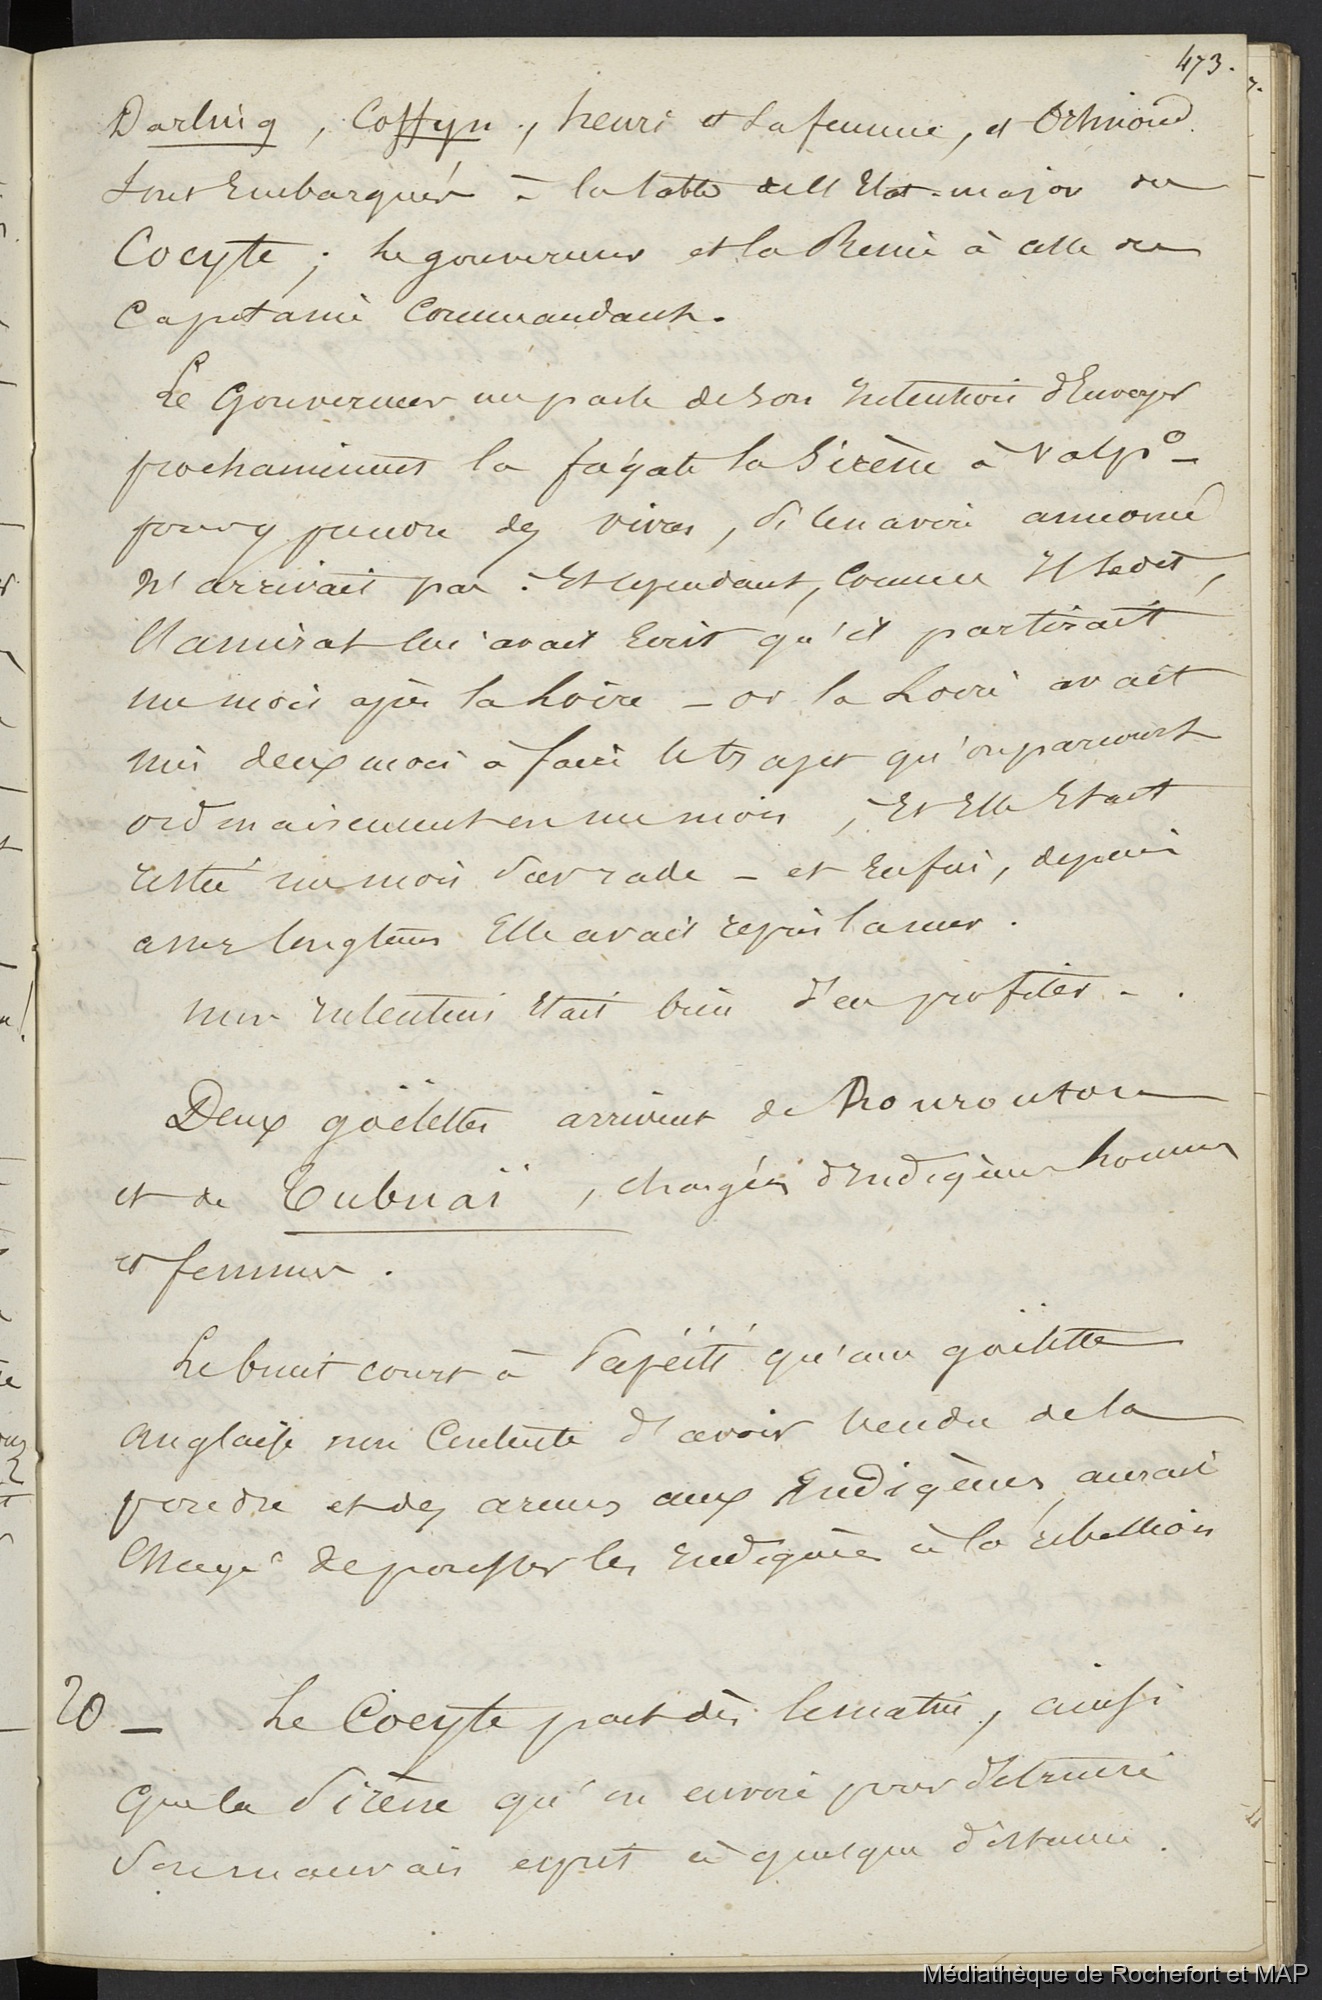 473.
Darling, Coffyn, henri et sa femme, et Ormond
sont Embarqués à la table de l'Etat-major du
Cocyte ; le gouverneur et la Reine à celle du
Capitaine Commandant.
Le Gouverneur me parle de son Intention d'Envoyer
prochainement la frégate la Sirène à Valpo
pour y prendre des vivres, si l'en avoir annoncé
N'arrivait pas. Et cependant, Comme Il le dit,
l'amiral lui avait Ecrit qu'il partirait
un mois après la Loire - or la Loire avait
mis deux mois à faire le trajet qu'on parcourt
ordinairement en un mois, Et Elle Etait
restée un mois sur rade - et Enfin, depuis
assez longtems Elle avait repris la mer.
mon Intention Etait bien d'en profiter - .
Deux goëlettes arrivent de Rouroutou
et de Tubuaï, chargées d'Indigènes hommes
et femmes.
Le bruit court à Papéiti qu'une goëlette
anglaise non Contente d'avoir vendu de la
poudre et des armes aux Indigènes, aurait
Essayé de pousser les Indigènes à la rébellion
20 - Le Cocyte part dès le matin, ainsi
que la Sirène qu'on envoie pour détruire
son mauvais esprit à quelque distance.
Médiathèque de Rochefort et MAP